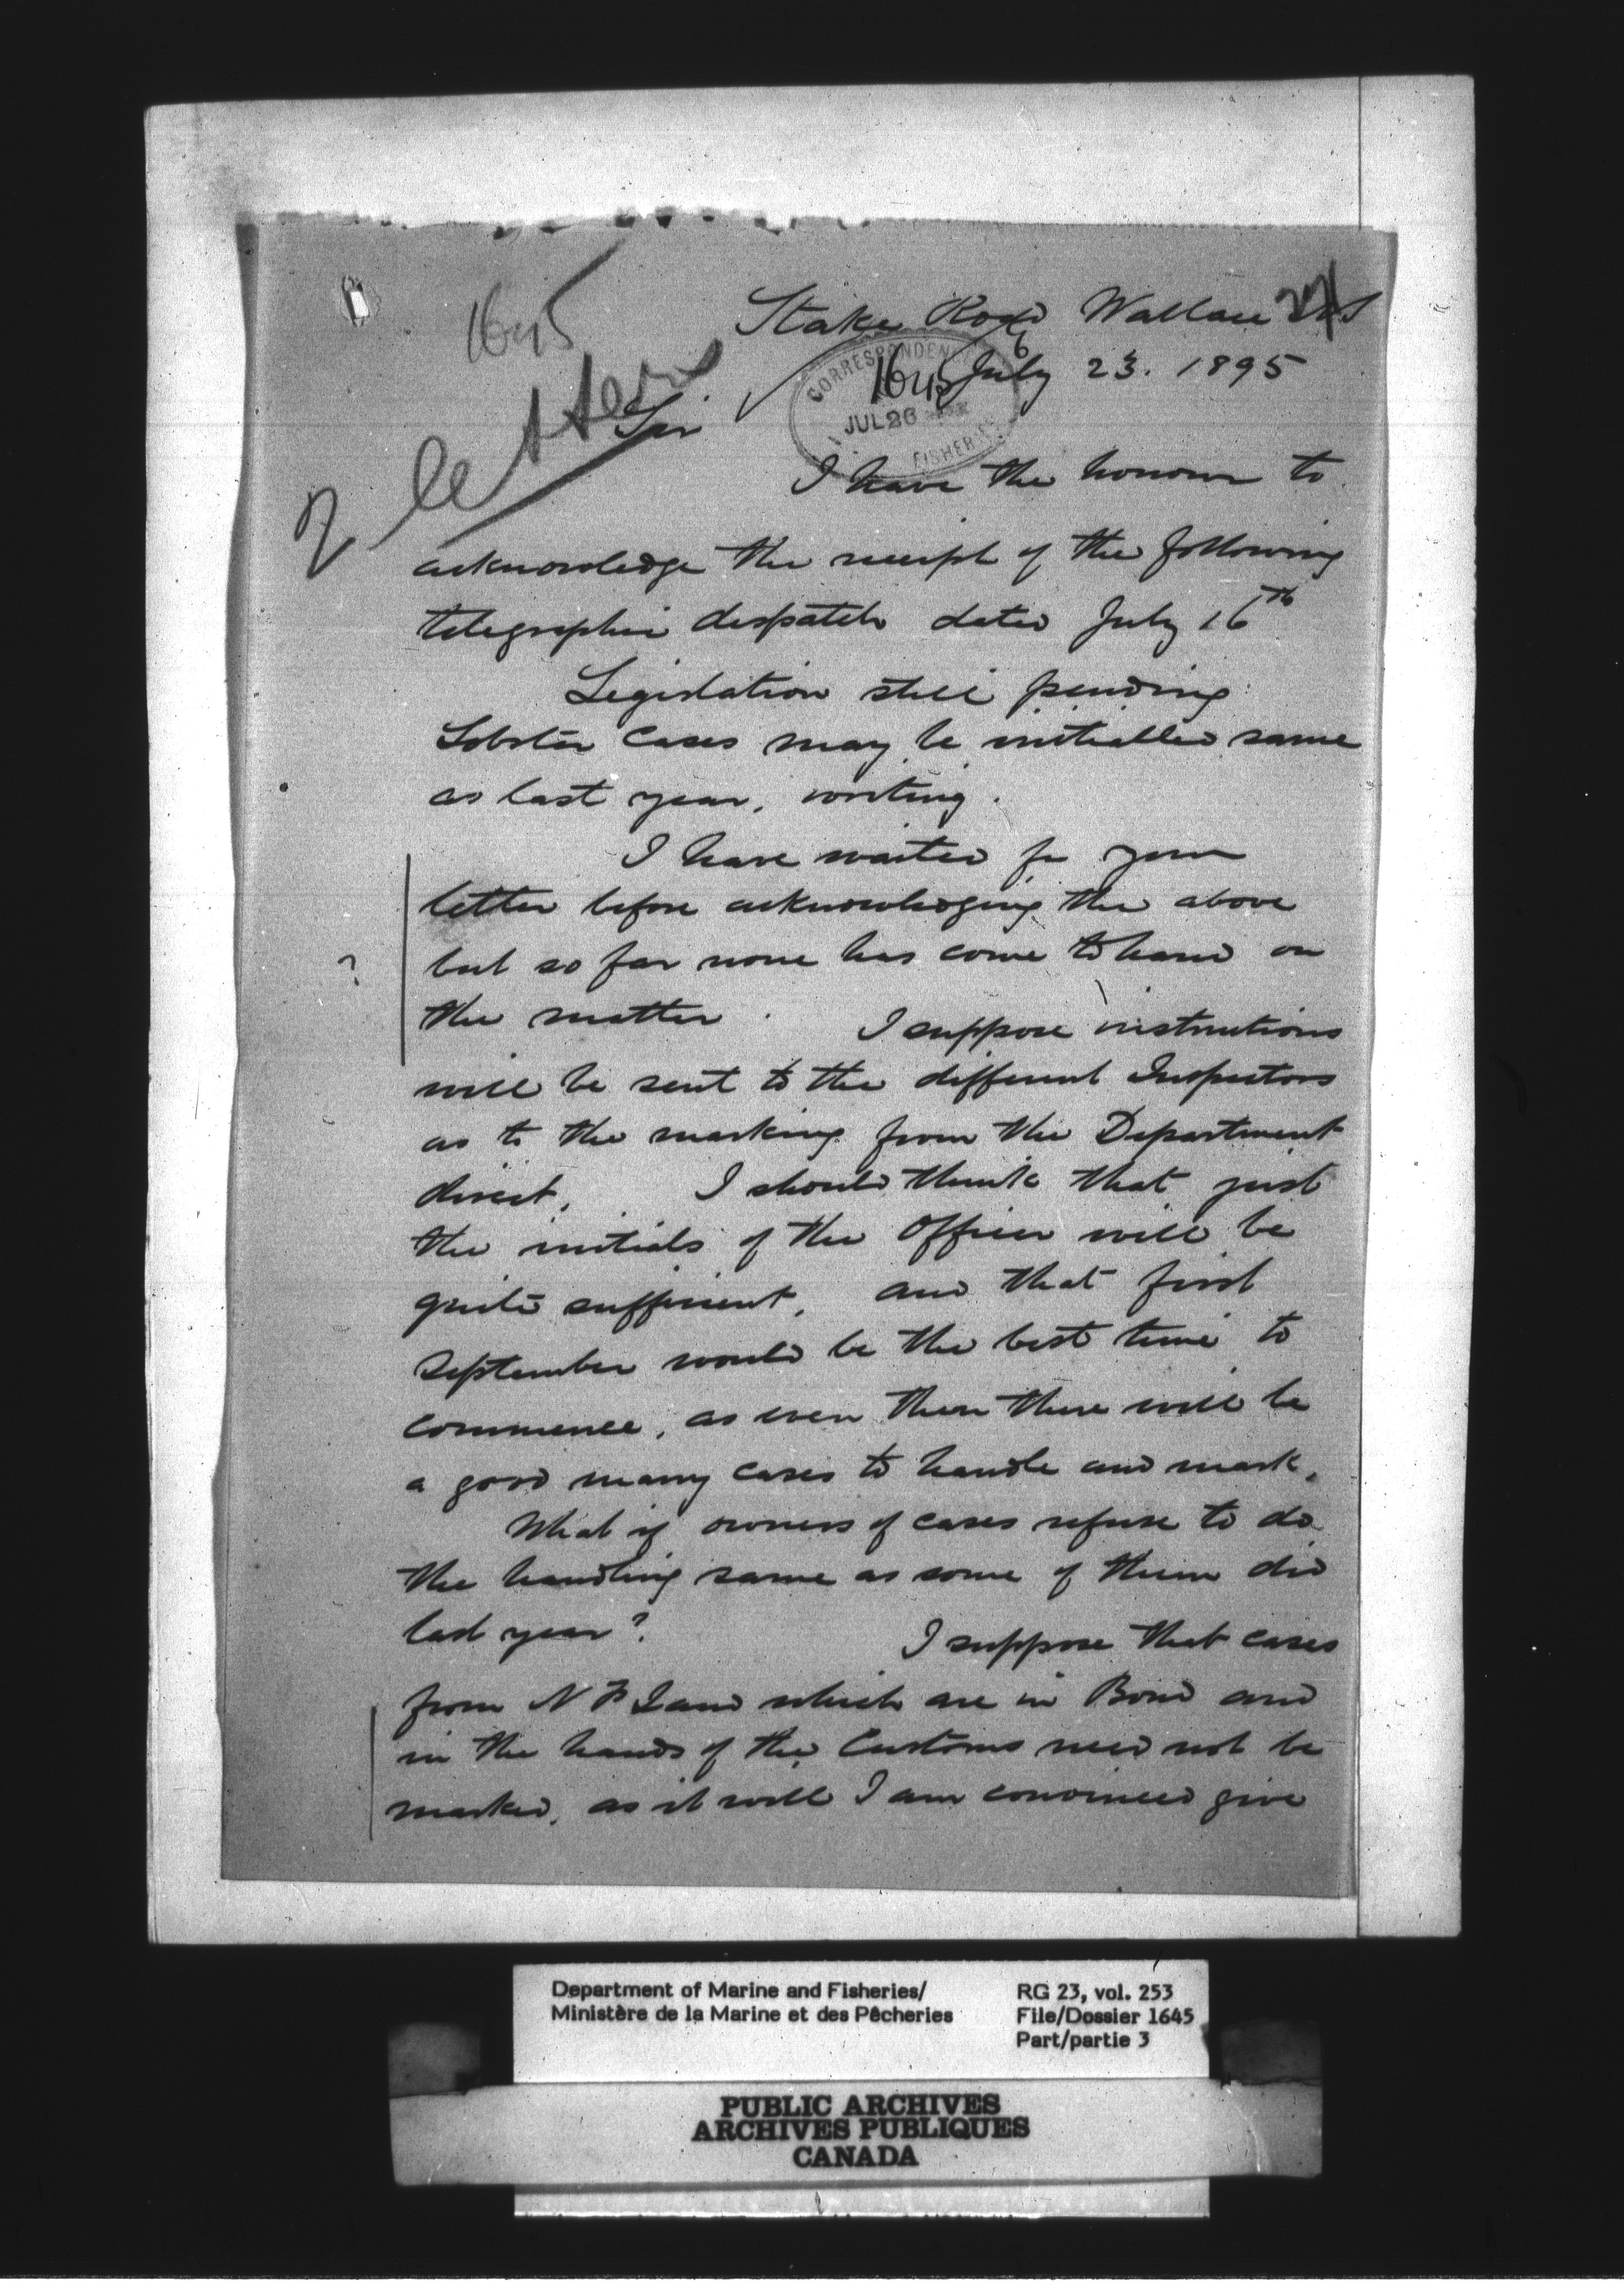 1645
Stake Road Wallace N S
CORRESPONDEN
1645
JUL 26
FISHERIES
July 23. 1895
2 letters
Sir
I have the honour to
acknowledge the receipt of the following
telegraphic despatch dated July 16th
Legislation still pending
Lobster Cases may be initialled same
as last year, writing.
I have waited for your
letter before acknowledging the above
but so far none has come to hand on
?
the matter. I suppose instructions
will be sent to the different Inspectors
as to the marking from the Department
direct. I should think that just
the initials of the Officer will be
quite sufficient, and that first
September would be the best time to
commence, as even then there will be
a good many cases to handle and mark.
What if owners of cases refuse to do
the handling same as some of them did
last year? I suppose that cases
from N F Land which are in Bond and
in the hands of the Customs need not be
marked, as it will I am convinced give
Department of Marine and Fisheries/
Ministère de la Marine et des Pêcheries
RG 23, vol. 253
File/Dossier 1645
Part/partie 3
PUBLIC ARCHIVES
ARCHIVES PUBLIQUES
CANADA